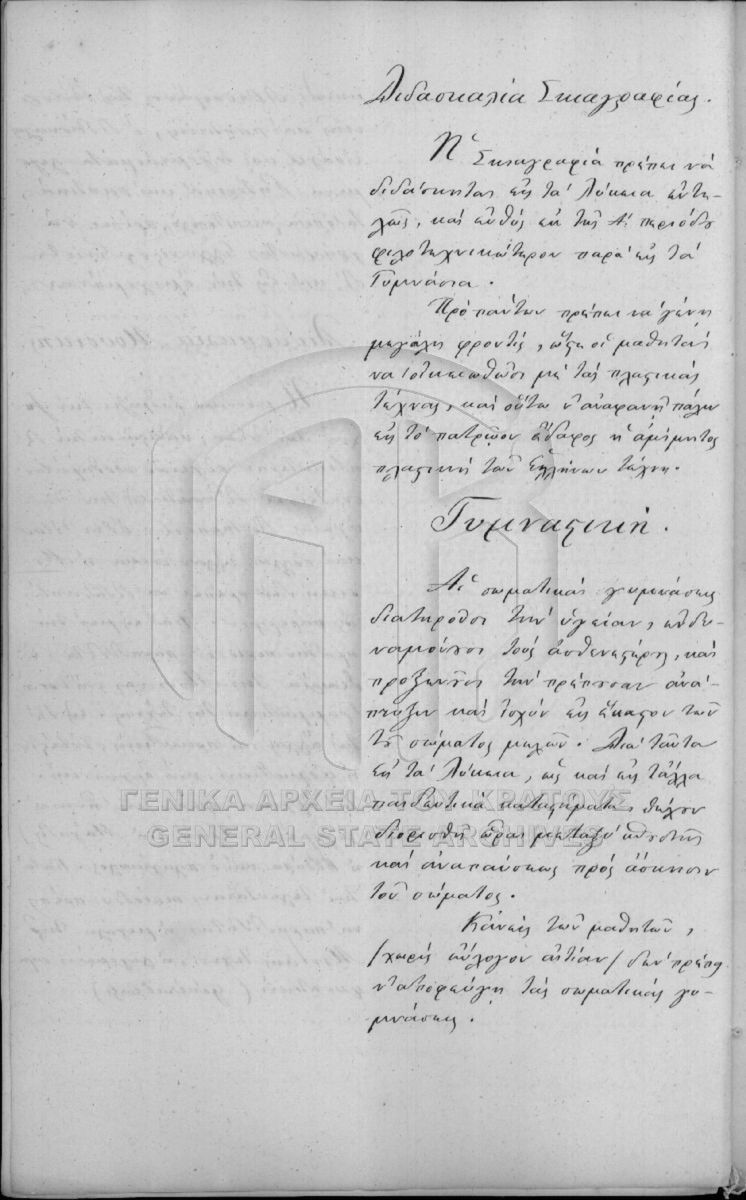 Διδασκαλία Σκιαγραφίας.
Ἡ Σκιαγραφία πρέπει νὰ
διδάσκηται εἰς τὰ Λύκεια ἐντε-
λῶς, καὶ εὐθὺς ἐκ τῆς Α! περιόδου
φιλοτεχνικώτερον παρὰ εἰς τὰ
Γυμνάσια.
Πρὸ πάντων πρέπει νὰ γένη
μεγάλη φροντὶς, ὥςε οἱ μαθηταὶ
νὰ οἰκειωθῶσι μὲ τὰς πλαςικὰς
τέχνας, καὶ οὕτω ν' ἀναφανῇ πάλιν
εἰς τὸ πατρῷον ἔδαφος ἡ ἀμίμητος
πλαςικὴ τῶν Ἑλλήνων τέχνη.
Γυμναςικὴ.
Αἱ σωματικαὶ γυμνάσεις
διατηροῦσι τὴν ὑγείαν, ἐνδυ-
ναμόνουσι τοὺς ἀσθενεςέρους, καὶ
προξενοῦσι τὴν πρέπουσαν ἀνά-
πτυξιν καὶ ἰσχὺν εἰς ἕκαςον τῶν
τοῦ σώματος μελῶν. Διὰ ταῦτα
εἰς τὰ Λύκεια, ὡς καὶ εἰς τἆλλα
παιδευτικὰ καταςήματα, θέλουν
διορισθῆ ὧραι μεταξὺ σπουδῆς
καὶ ἀναπαύσεως πρὸς ἄσκησιν
τοῦ σώματος.
Κἀνεὶς τῶν μαθητῶν,
/χωρὶς εὔλογον αἰτίαν/ δὲν πρέπει
ν' ἀποφεύγῃ τὰς σωματικὰς γυ-
μνάσεις.
ΓΕΝΙΚΑ ΑΡΧΕΙΑ ΤΟΥ ΚΡΑΤΟΥΣ
GENERAL STATE ARCHIVES